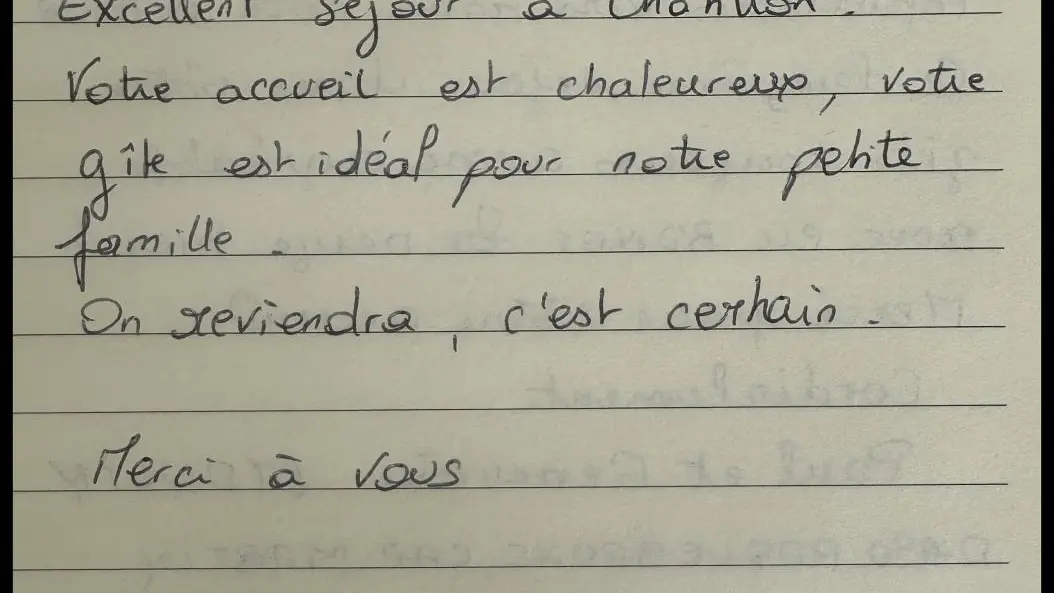 Excellent séjour à
Votre accueil est chaleureux, votre
gîte est idéal pour notre petite
famille.
On reviendra, c'est certain.
Merci à vous